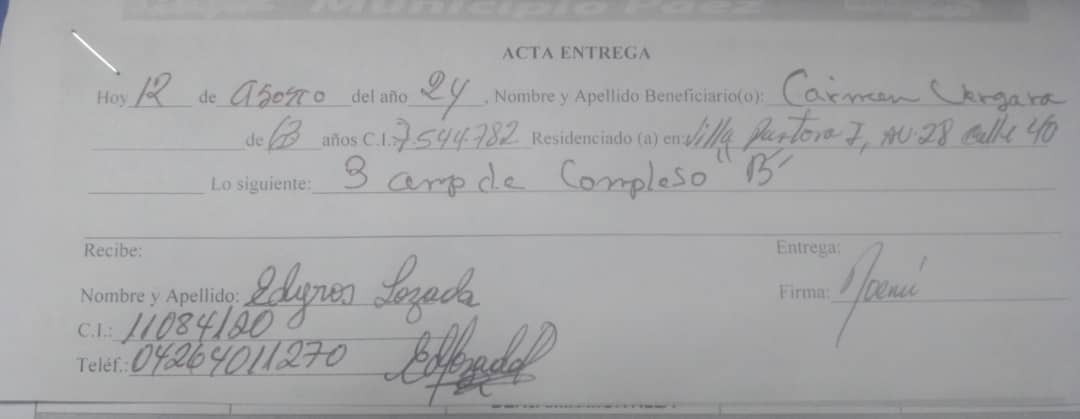 Municipio Páez
ACTA ENTREGA
Hoy 12 de agosto del año 24, Nombre y Apellido Beneficiario(o): Carmen Vergara
de 63 años C.I.: 7.544.782 Residenciado (a) en: Villa Pastora I, AV. 28 calle 40
Lo siguiente: 3 amp de Complejo "B"
Recibe: Entrega:
Nombre y Apellido: Lozada Firma:
C.I.: 11084120
Teléf.: 04264011270